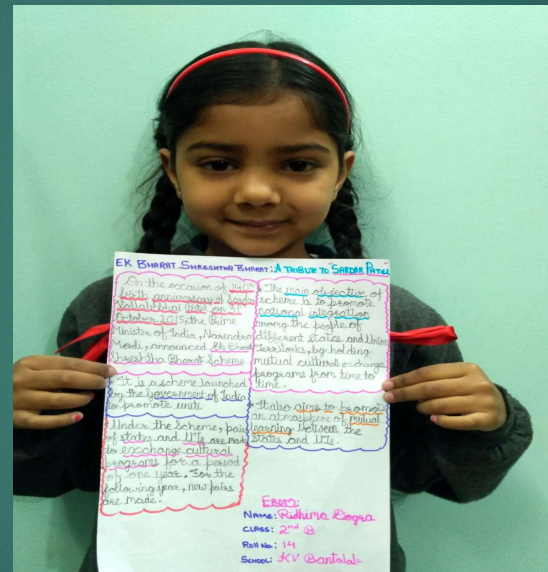 EK BHARAT SHRESHTHA BHARAT: A TRIBUTE TO "SARDAR PATEL"
On the occasion of
birth anniversary of Sardar
Vallabhbhai Patel on 31
October 2015, the Prime
Minister of India, Narendra
Modi, announced Ek Bharat
Shreshtha Bharat Scheme
It is a scheme launched
by the government of India
to promote
Under the Scheme, pairs
of states and UTs are made
to exchange cultural
programs for a period
of one year. For the
following year, new pairs
are made.
The main objective of
scheme is to promote
national integration
among the people of
different states and Union
Territories, by holding
mutual cultural exchange
programs from time to
time.
It also aims to promote
an atmosphere of mutual
learning between the
states and UTs.
FROM:
NAME: Ridhima Dogra
CLASS: 2nd B
ROLL NO: 14
SCHOOL: KV Bantalab